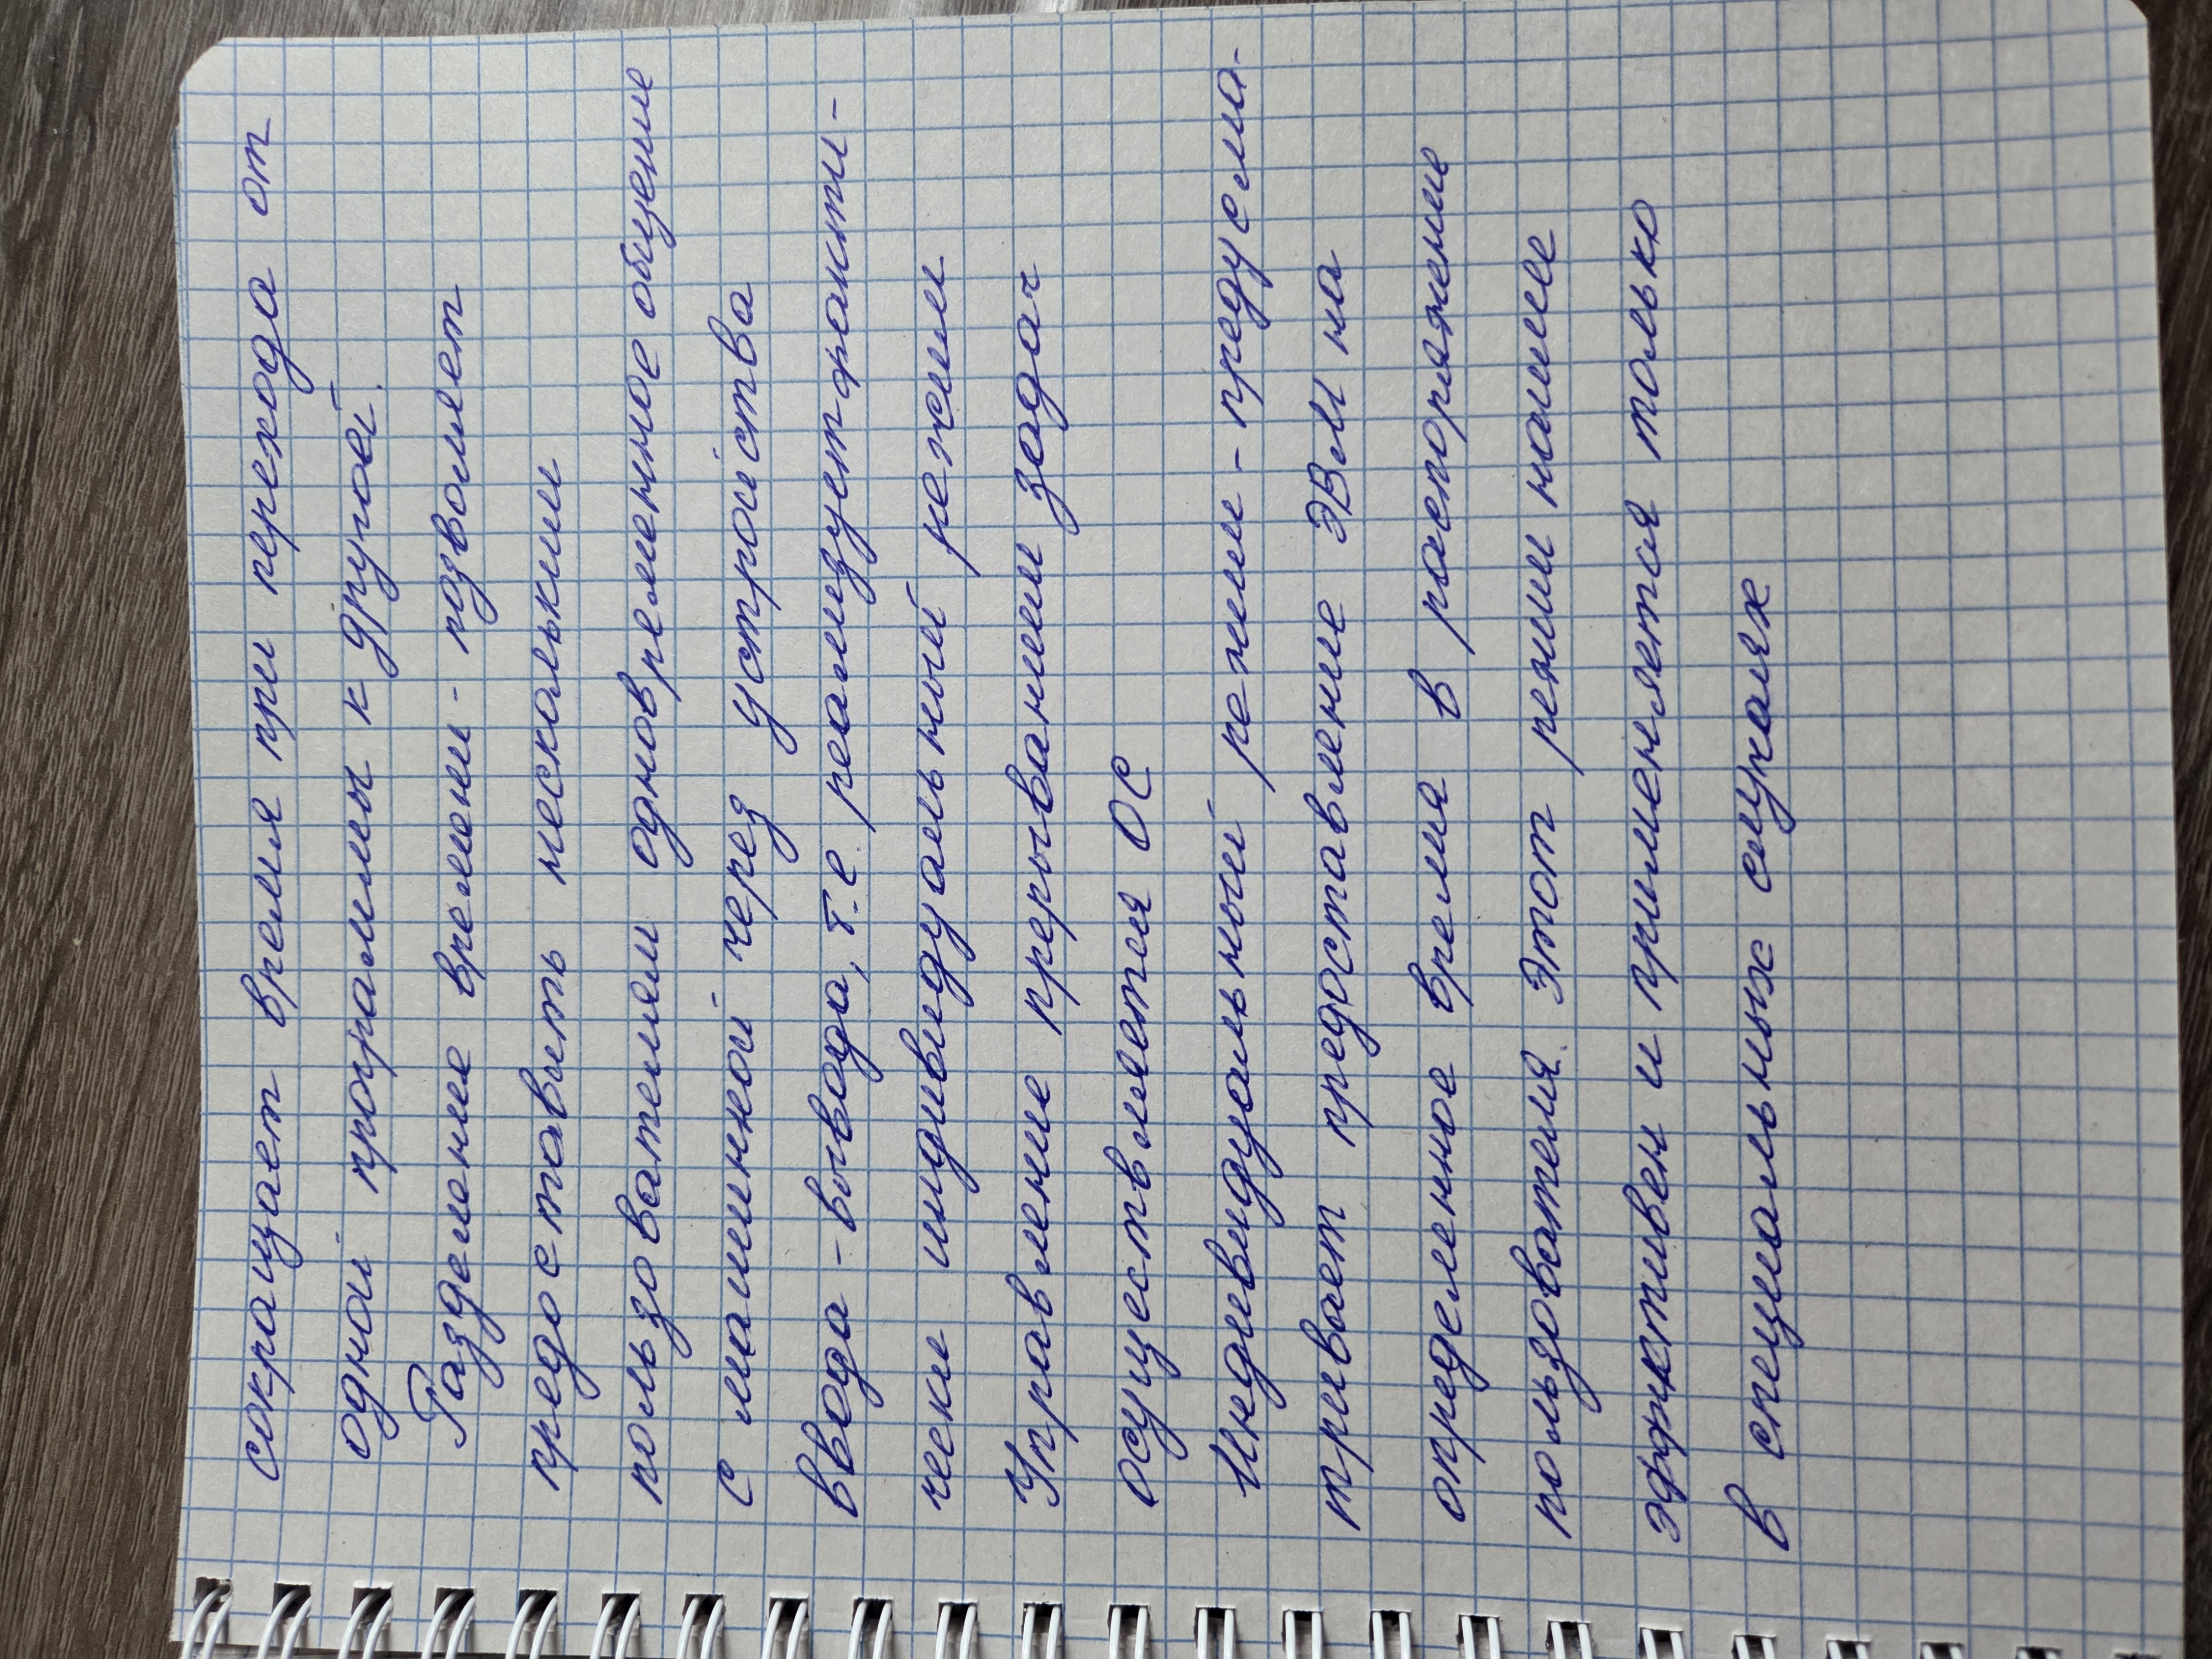 сокращает время при перехода от
одной программы к другой.
Разделение времени - позволяет
предоставить нескольким
пользователям одновременное общение
с машинной через устройства
ввода-вывода, т.е реализует факти-
чески индивидуальный режим
Управление прерыванием задач
осуществляется ОС
Индивидуальный режим - предусма-
тривает предоставление ЭВМ на
определенное время в распоряжение
пользователя. Этот режим наименее
эффективен и применяется только
в специальных случаях